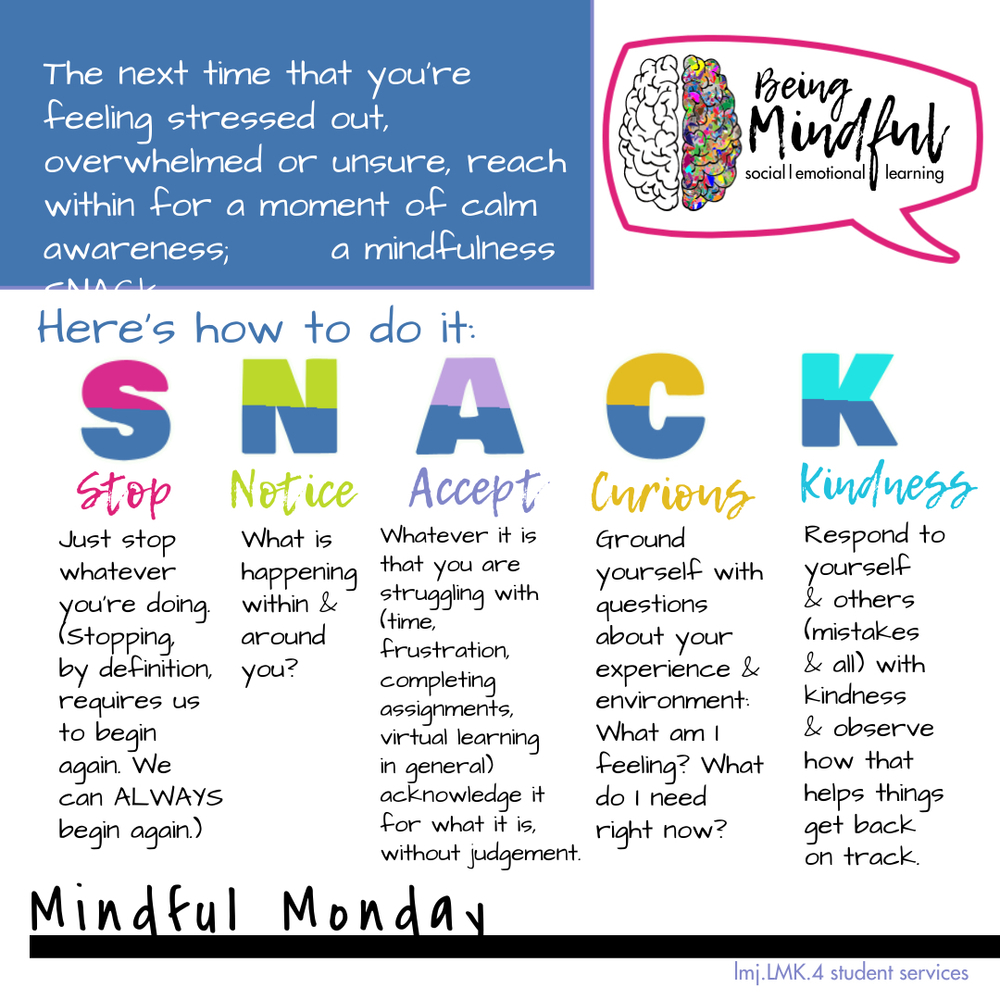 The next time that you're
feeling stressed out,
overwhelmed or unsure, reach
within for a moment of calm
awareness; a mindfulness
SNACK
Being
Mindful
social | emotional learning
Here's how to do it:
S N A C K
Stop
Just stop
whatever
you're doing.
(Stopping,
by definition,
requires us
to begin
again. We
can ALWAYS
begin again.)
Notice
What is
happening
within &
around
you?
Accept
Whatever it is
that you are
struggling with
(time,
frustration,
completing
assignments,
virtual learning
in general)
acknowledge it
for what it is,
without judgement.
Curious
Ground
yourself with
questions
about your
experience &
environment:
What am I
feeling? What
do I need
right now?
Kindness
Respond to
yourself
& others
(mistakes
& all) with
kindness
& observe
how that
helps things
get back
on track.
Mindful Monday
lmj.LMK.4 student services